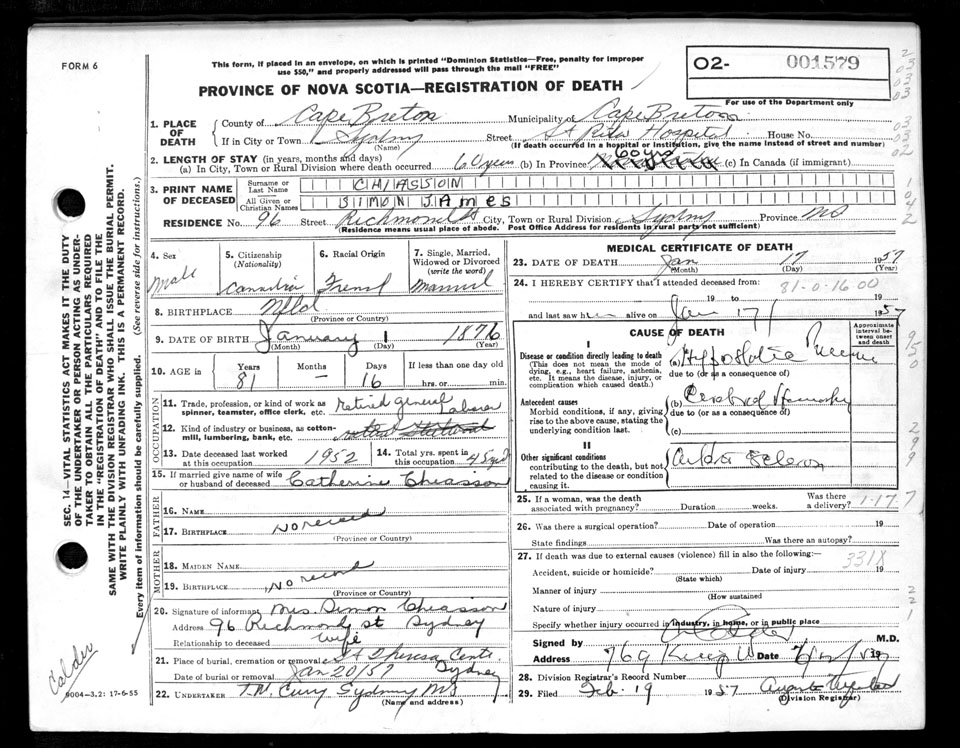 FORM 6
This form, if placed in an envelope, on which is printed "Dominion Statistics—Free, penalty for improper
use $50," and properly addressed will pass through the mail "FREE"
PROVINCE OF NOVA SCOTIA—REGISTRATION OF DEATH
02- 001579
For use of the Department only
1. PLACE OF DEATH
County of Cape Breton Municipality of Cape Breton
If in City or Town Sydney Street St Rita Hospital House No.
(Name) (If death occurred in a hospital or institution, give the name instead of street and number)
2. LENGTH OF STAY (in years, months and days)
(a) In City, Town or Rural Division where death occurred 60 years (b) In Province 60 yrs (c) In Canada (if immigrant)
3. PRINT NAME OF DECEASED
Surname or Last Name CHIASSON
All Given or Christian Names SIMON JAMES
RESIDENCE No. 96 Street Richmond St City, Town or Rural Division Sydney Province NS
(Residence means usual place of abode. Post Office Address for residents in rural parts not sufficient)
4. Sex Male
5. Citizenship (Nationality) Canadian
6. Racial Origin French
7. Single, Married, Widowed or Divorced (write the word) Married
8. BIRTHPLACE Nfld
(Province or Country)
9. DATE OF BIRTH January 1 1876
(Month) (Day) (Year)
10. AGE in Years 81 Months — Days 16 If less than one day old hrs. or min.
OCCUPATION
11. Trade, profession, or kind of work as spinner, teamster, office clerk, etc. Retired general Laborer
12. Kind of industry or business, as cotton-mill, lumbering, bank, etc.
13. Date deceased last worked at this occupation 1952
14. Total yrs. spent in this occupation 45 yrs
15. If married give name of wife or husband of deceased Catherine Chiasson
FATHER
16. NAME
17. BIRTHPLACE No record
(Province or Country)
MOTHER
18. MAIDEN NAME
19. BIRTHPLACE No record
(Province or Country)
20. Signature of informant Mrs. Simon Chiasson
Address 96 Richmond St Sydney
Relationship to deceased Wife
21. Place of burial, cremation or removal St Theresa Cem. Sydney
Date of burial or removal Jan 20/57
22. UNDERTAKER T.W. Curry Sydney NS
(Name and address)
MEDICAL CERTIFICATE OF DEATH
23. DATE OF DEATH Jan 17 1957
(Month) (Day) (Year)
24. I HEREBY CERTIFY that I attended deceased from:
81-0-16 00
19 to 19
and last saw him alive on Jan 17 1957
CAUSE OF DEATH
Approximate interval between onset and death
I
Disease or condition directly leading to death
(This does not mean the mode of dying, e.g., heart failure, asthenia, etc. It means the disease, injury, or complication which caused death.)
(a) Hypostatic
due to (or as a consequence of)
Antecedent causes
Morbid conditions, if any, giving rise to the above cause, stating the underlying condition last.
(b) Cerebral
due to (or as a consequence of)
(c)
II
Other significant conditions
contributing to the death, but not related to the disease or condition causing it.
25. If a woman, was the death associated with pregnancy? Duration weeks. Was there a delivery?
1-17 7
26. Was there a surgical operation? Date of operation 19
State findings Was there an autopsy?
27. If death was due to external causes (violence) fill in also the following:—
331X
Accident, suicide or homicide? Date of injury 19
(State which)
Manner of injury
(How sustained
Nature of injury
Specify whether injury occurred in industry, in home, or in public place
Signed by M.D.
Address 769 Date
28. Division Registrar's Record Number
29. Filed Feb. 19 1957
(Division Registrar)
SEC. 14—VITAL STATISTICS ACT MAKES IT THE DUTY
OF THE UNDERTAKER OR PERSON ACTING AS UNDER-
TAKER TO OBTAIN ALL THE PARTICULARS REQUIRED
IN THE "REGISTRATION OF DEATH" AND TO FILE THE
SAME WITH THE DIVISION REGISTRAR WHO SHALL ISSUE THE BURIAL PERMIT.
WRITE PLAINLY WITH UNFADING INK. THIS IS A PERMANENT RECORD.
Every item of information should be carefully supplied. (See reverse side for instructions.)
Calder
9004-3.2: 17-6-55